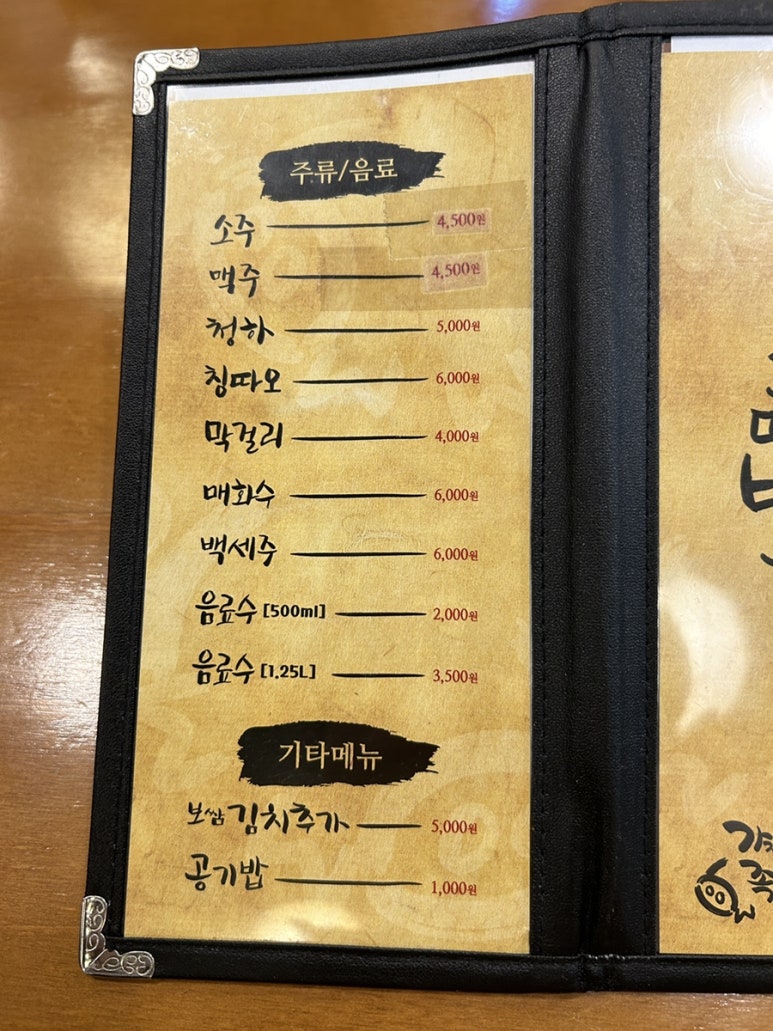 주류/음료
소주 4,500원
맥주 4,500원
청하 5,000원
칭따오 6,000원
막걸리 4,000원
매화수 6,000원
백세주 6,000원
음료수 [500ml] 2,000원
음료수 [1.25L] 3,500원
기타메뉴
보쌈 김치추가 5,000원
공기밥 1,000원